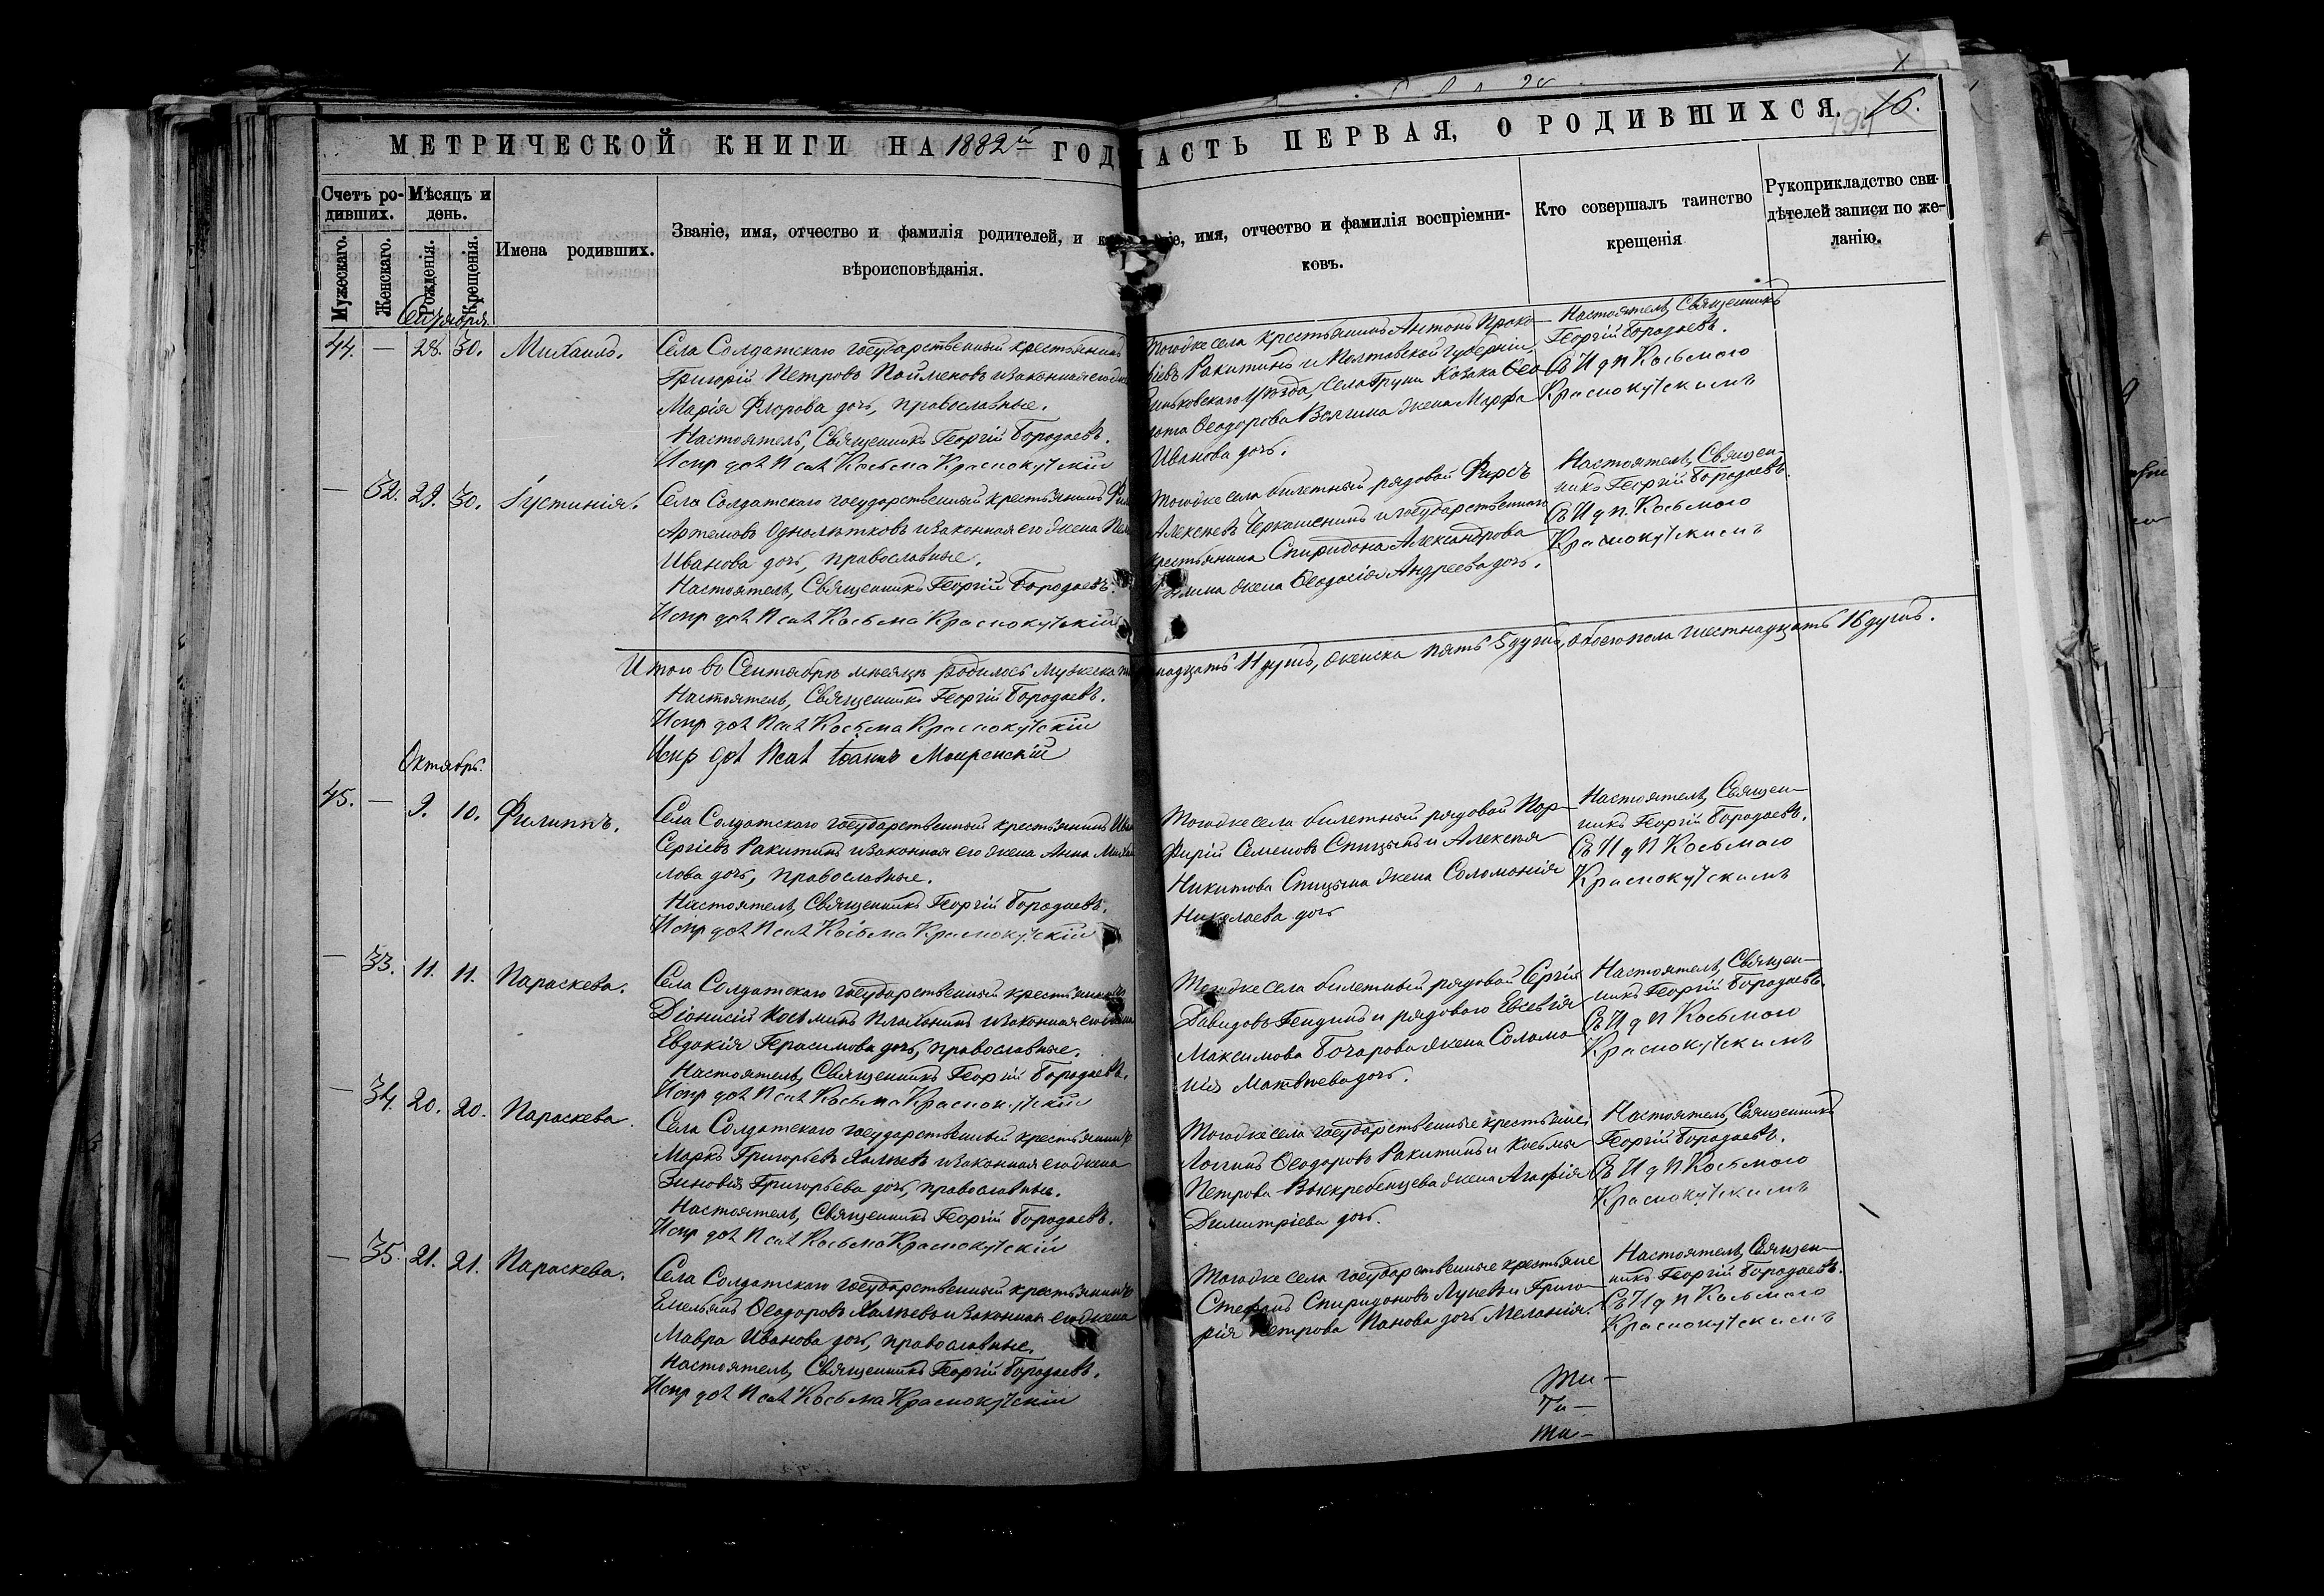 МЕТРИЧЕСКОЙ КНИГИ НА 1882й ГОД
ЧАСТЬ ПЕРВАЯ, О РОДИВШИХСЯ. 16.
Счетъ ро-
дившихъ.
Мужескаго.
Женскаго.
Мѣсяцъ и
день.
Рожденія.
Крещенія.
Имена родившихъ.
Званіе, имя, отчество и фамилія родителей, и к
вѣроисповѣданія.
іе, имя, отчество и фамилія воспріемни-
ковъ.
Кто совершалъ таинство
крещенія
Рукоприкладство сви-
дѣтелей записи по же-
ланію.
Сентября
44. — 28. 30. Михаилъ.
Села Солдатскаго государственный крестьянинъ
Григорій Петровъ изаконная его
Марія дочь, православные.
Настоятель, Священникъ Георгій Бородаевъ.
Испр дол Псал Косьма Краснокутскій
Тогоже села крестьянинъ Антонъ Проко-
іевъ Ракитинъ и Полтавской губерніи,
уѣзда, села Груни Козака Ѳео
Ѳеодорова жена Марфа
Иванова дочь.
Настоятель, Священникъ
Георгій Бородаевъ.
Съ И д п Косьмою
Краснокутскимъ
— 32. 29. 30. Іустинія.
Села Солдатскаго государственный крестьянинъ
Артемовъ Однолѣтковъ изаконная его жена
Иванова дочь, православные.
Настоятель, Священникъ Георгій Бородаевъ.
Испр дол Псал Косьма Краснокутскій
Тогоже села билетный рядовой Фирсъ
Алексѣевъ Черкашенинъ и государственнаго
крестьянина Спиридона Александрова
жена Ѳеодосія Андреева дочь.
Настоятель, Священ-
никъ Георгій Бородаевъ.
Съ И д п. Косьмою
Краснокутскимъ
Итого въ Сентябрѣ мѣсяцѣ родилось мужеска
надцать 11 душъ, женска пять 5 душъ, обоего пола шестнадцать 16 душъ.
Настоятель, Священникъ Георгій Бородаевъ.
Испр дол Псал Косьма Краснокутскій
Испр дол Псал Іоаннъ
Октябрь.
45. — 9. 10. Филиппъ.
Села Солдатскаго государственный крестьянинъ Ива
Сергіевъ Ракитинъ изаконная его жена Анна Михаи
лова дочь, православные.
Настоятель, Священникъ Георгій Бородаевъ.
Испр дол Псал Косьма Краснокутскій
Тогоже села билетный рядовой Пор-
фирій Семеновъ Спицынъ и Алексѣя
Никитова Спицына жена Соломонія
Николаева дочь
Настоятель, Священ-
никъ Георгій Бородаевъ.
Съ И д п Косьмою
Краснокутскимъ
— 33. 11. 11. Параскева.
Села Солдатскаго государственный крестьянинъ
Діонисій Косьминъ изаконная его жена
Евдокія Герасимова дочь, православные.
Настоятель, Священникъ Георгій Бородаевъ.
Испр дол Псал Косьма Краснокутскій
Тогоже села билетный рядовой Сергій
Давидовъ и рядоваго Евсевія
Максимова Бочарова жена Соломо-
нія Матвѣева дочь.
Настоятель, Священ-
никъ Георгій Бородаевъ.
Съ И д п Косьмою
Краснокутскимъ
— 34. 20. 20. Параскева.
Села Солдатскаго государственный крестьянинъ
Маркъ Григорьевъ Халѣевъ изаконная его жена
Зиновія Григорьева дочь, православные.
Настоятель, Священникъ Георгій Бородаевъ.
Испр дол Псал Косьма Краснокутскій
Тогоже села государственные крестьяне,
Логинъ Ѳеодоровъ Ракитинъ и Косьмы
Петрова Выскребенцева жена Агафія
Димитріева дочь.
Настоятель, Священникъ
Георгій Бородаевъ.
Съ И д п Косьмою
Краснокутскимъ
— 35. 21. 21. Параскева.
Села Солдатскаго государственный крестьянинъ
Емельянъ Ѳеодоровъ Халѣевъ изаконная его жена
Мавра Иванова дочь, православные.
Настоятель, Священникъ Георгій Бородаевъ.
Испр дол Псал Косьма Краснокутскій
Тогоже села государственные крестьяне
Стефанъ Спиридоновъ Луневъ и Григо-
рія Петрова Панова дочь Меланія.
Настоятель, Священ-
никъ Георгій Бородаевъ.
Съ И д п Косьмою
Краснокутскимъ